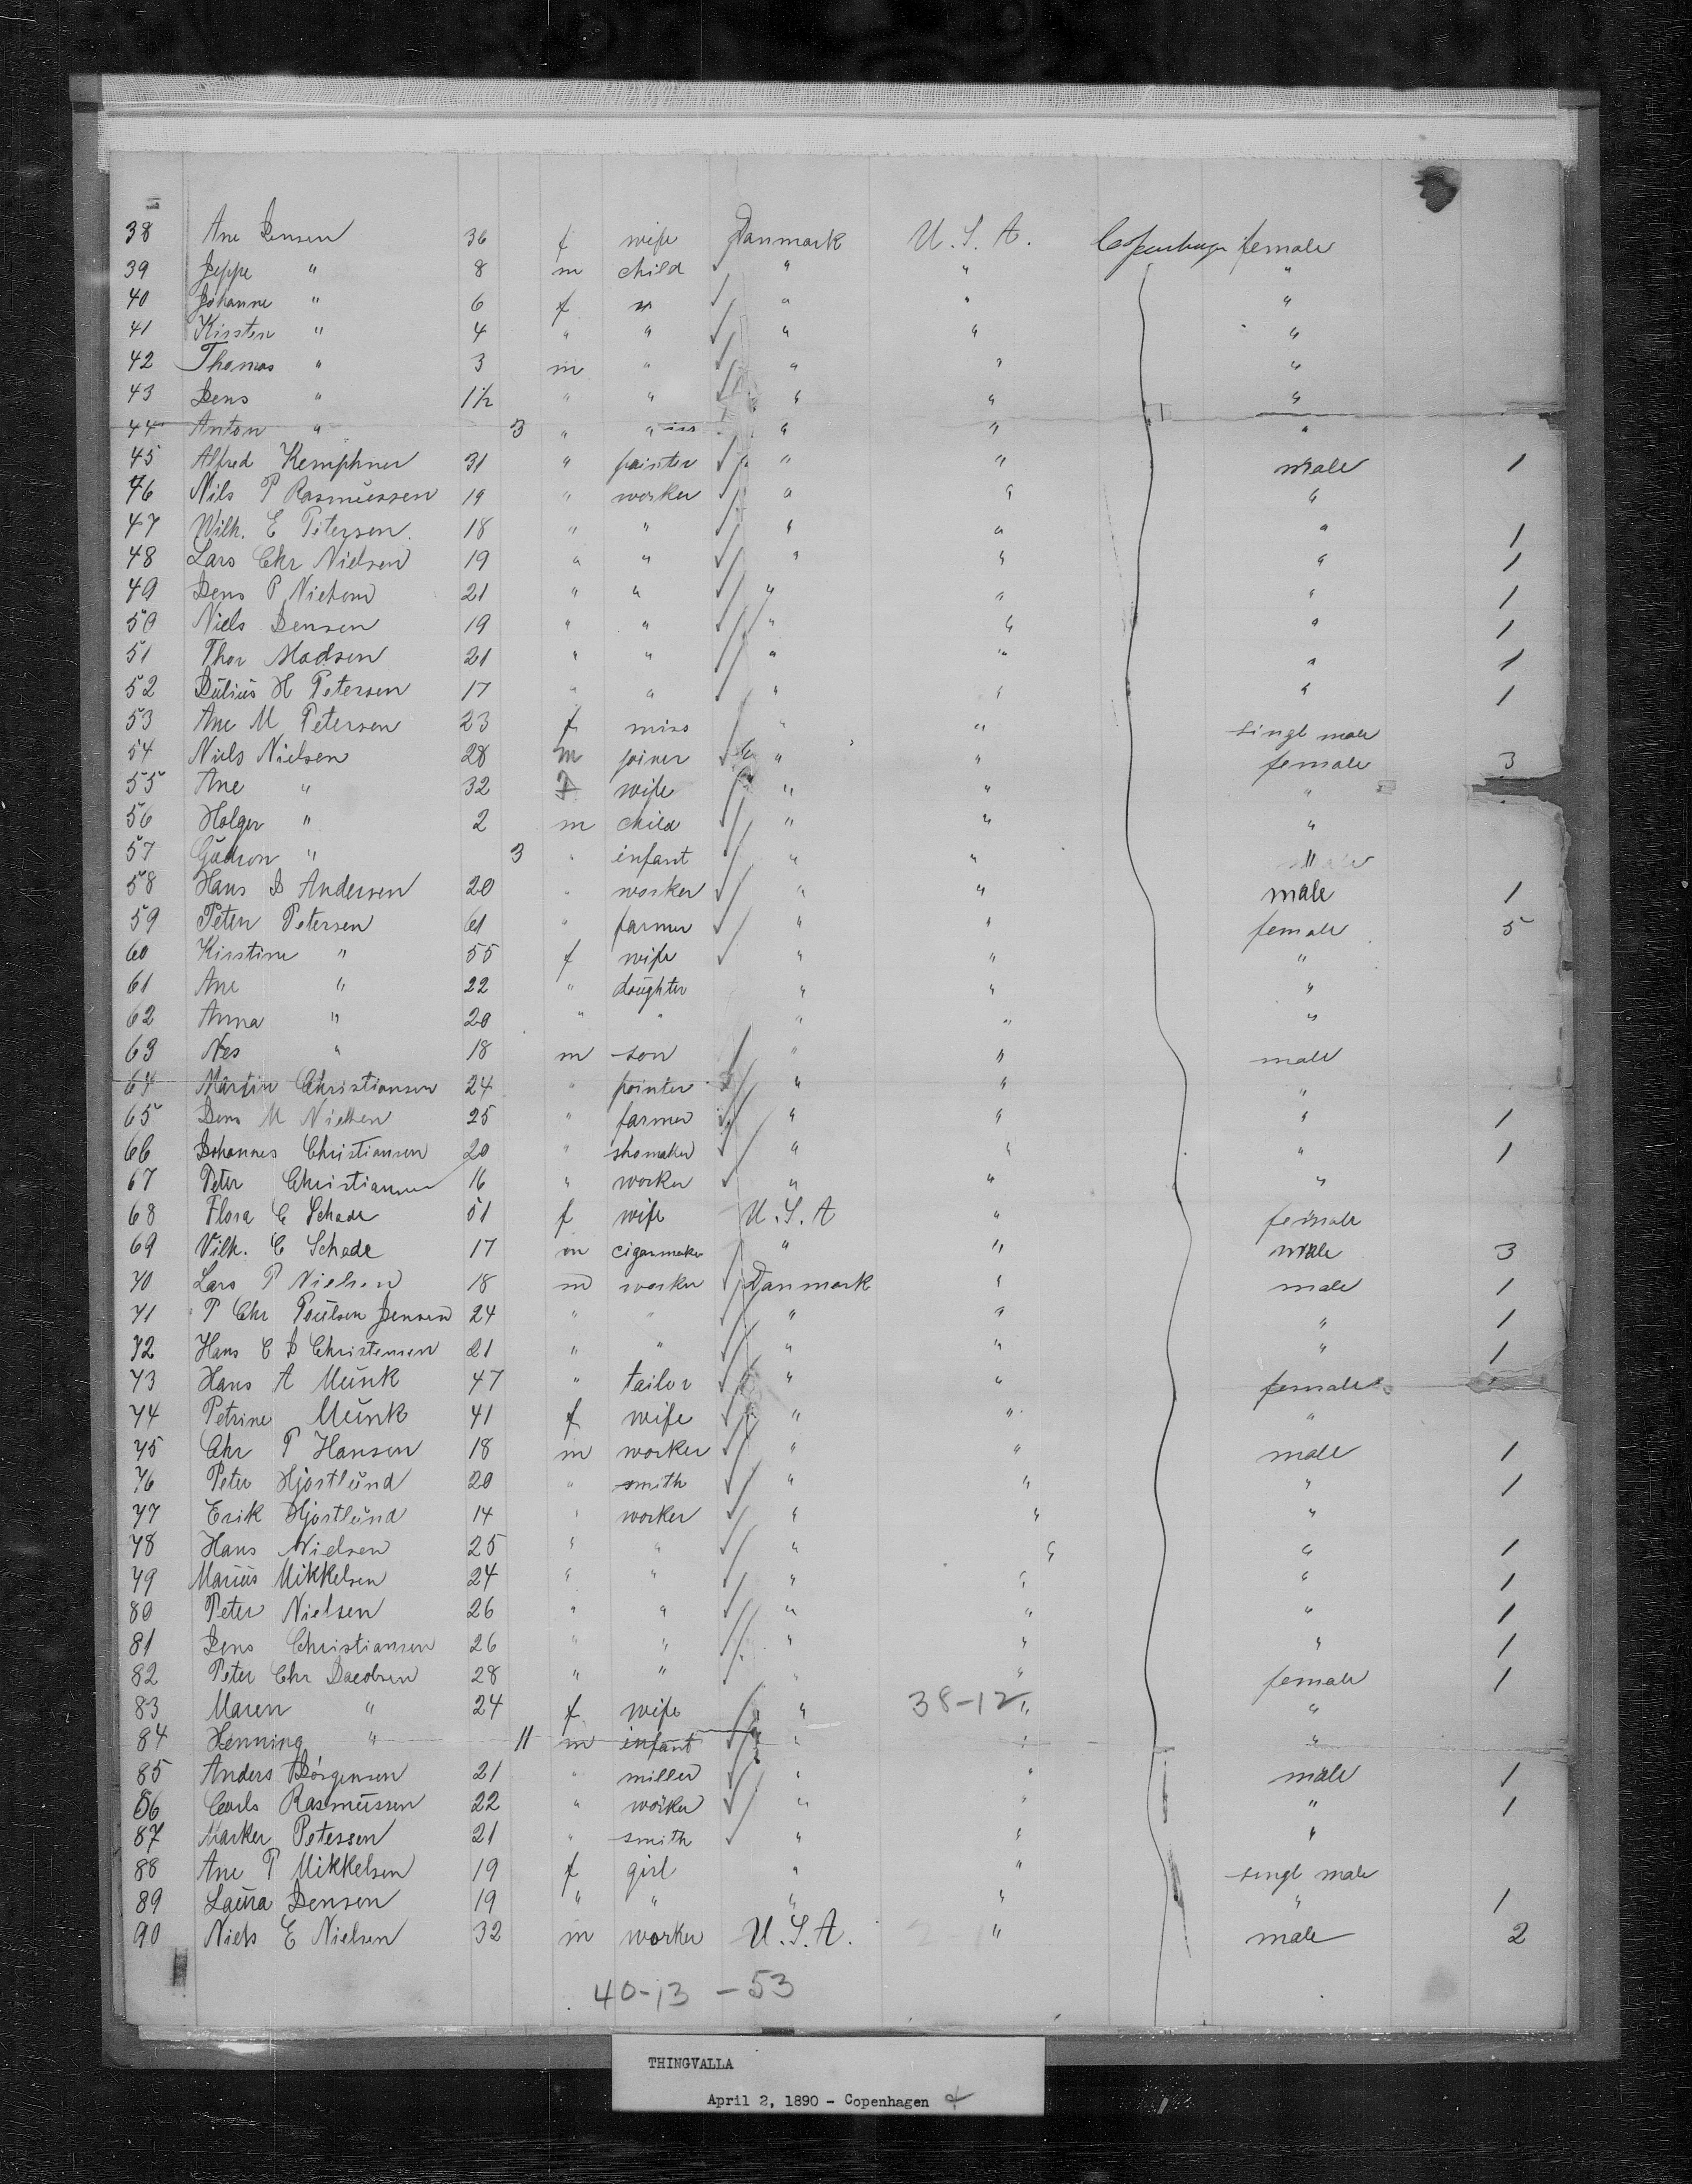 38 Ane Jensen 36 f wife Danmark U.S.A. Copenhagen female
39 Jeppe " 8 m child " " "
40 Johanne " 6 f " " " "
41 Kirsten " 4 " " " " "
42 Thomas " 3 m " " " "
43 Jens " 1½ " " " " "
44 Anton " 3 " " " " "
45 Alfred Kemphner 31 " painter " " male 1
46 Nils P Rasmussen 19 " worker " " "
47 Wilh. E Petersen 18 " " " " " 1
48 Lars Chr Nielsen 19 " " " " " 1
49 Jens P 21 " " " " " 1
50 Niels Jensen 19 " " " " " 1
51 Thor Madsen 21 " " " " " 1
52 Julius H Petersen 17 " " " " " 1
53 Ane M Petersen 23 f miss " " singl male
54 Niels Nielsen 28 m joiner " " female 3
55 Ane " 32 f wife " " "
56 Holger " 2 m child " " "
57 Gudron " 3 " infant " " "
58 Hans J Andersen 20 " worker " " male 1
59 Peter Petersen 61 " farmer " " female 5
60 Kirstine " 55 f wife " " "
61 Ane " 22 " doughter " " "
62 Anna " 20 " " " " "
63 Nes " 18 m son " " male
64 Martin Christiansen 24 " pointer " " "
65 Jens M Nielsen 25 " farmer " " " 1
66 Johannes Christiansen 20 " shomaker " " " 1
67 Peter Christiansen 16 " worker " " "
68 Flora C Schade 51 f wife U.S.A " female
69 Vilh. C Schade 17 m cigarmaker " " male 3
70 Lars P Nielsen 18 m worker Danmark " male 1
71 P Chr Poulsen Jensen 24 " " " " " 1
72 Hans C J Christensen 21 " " " " " 1
73 Hans A Munk 47 " tailor " " female
74 Petrine Munk 41 f wife " " "
75 Chr P Hansen 18 m worker " " male 1
76 Peter Hjostlund 20 " smith " " " 1
77 Erik Hjostlund 14 " worker " " "
78 Hans Nielsen 25 " " " " " 1
79 Marius Mikkelsen 24 " " " " " 1
80 Peter Nielsen 26 " " " " " 1
81 Jens Christiansen 26 " " " " " 1
82 Peter Chr Jacobsen 28 " " " " female 1
83 Maren " 24 f wife " 38-12 " "
84 Henning " 11 m infant " " "
85 Anders Jörgensen 21 " miller " " male 1
86 Carls Rasmussen 22 " worker " " " 1
87 Marker Petersen 21 " smith " " "
88 Ane P Mikkelsen 19 f girl " " singl male
89 Laura Jensen 19 " " " " " 1
90 Niels E Nielsen 32 m worker U.S.A. " male 2
40-13 - 53
THINGVALLA
April 2, 1890 - Copenhagen